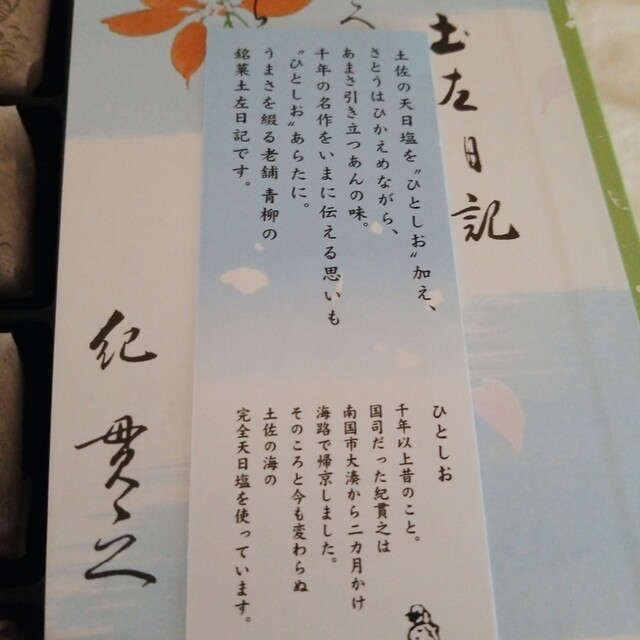 土左日記
土佐の天日塩を〝ひとしお〟加え、
さとうはひかえめながら、
あまさ引き立つあんの味。
千年の名作をいまに伝える思いも
〝ひとしお〟あらたに。
うまさを綴る老舗 青柳の
銘菓土左日記です。
ひとしお
千年以上昔のこと。
国司だった紀貫之は
南国市大湊から二カ月かけ
海路で帰京しました。
そのころと今も変わらぬ
土佐の海の
完全天日塩を使っています。
紀貫之